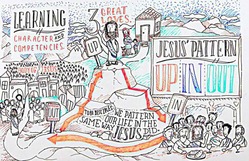 LEARNING
CHARACTER AND
COMPETENCIES.
3 GREAT
LOVES
JESUS' PATTERN
UP, IN, OUT
IN
WE PATTERN
OUR LIFE IN THE
SAME WAY JESUS DID.